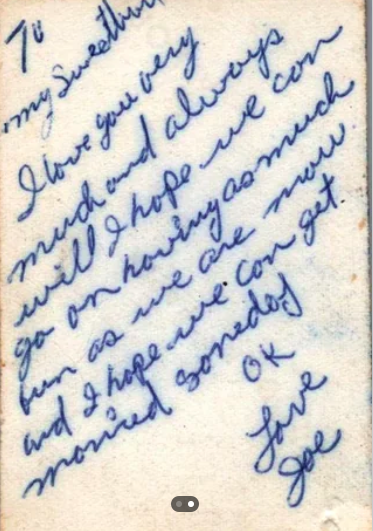 To
my Sweethur
I love you very
much and always
will I hope we can
go on having as much
fun as we are now
and I hope we can get
married someday
OK
Love
Joe